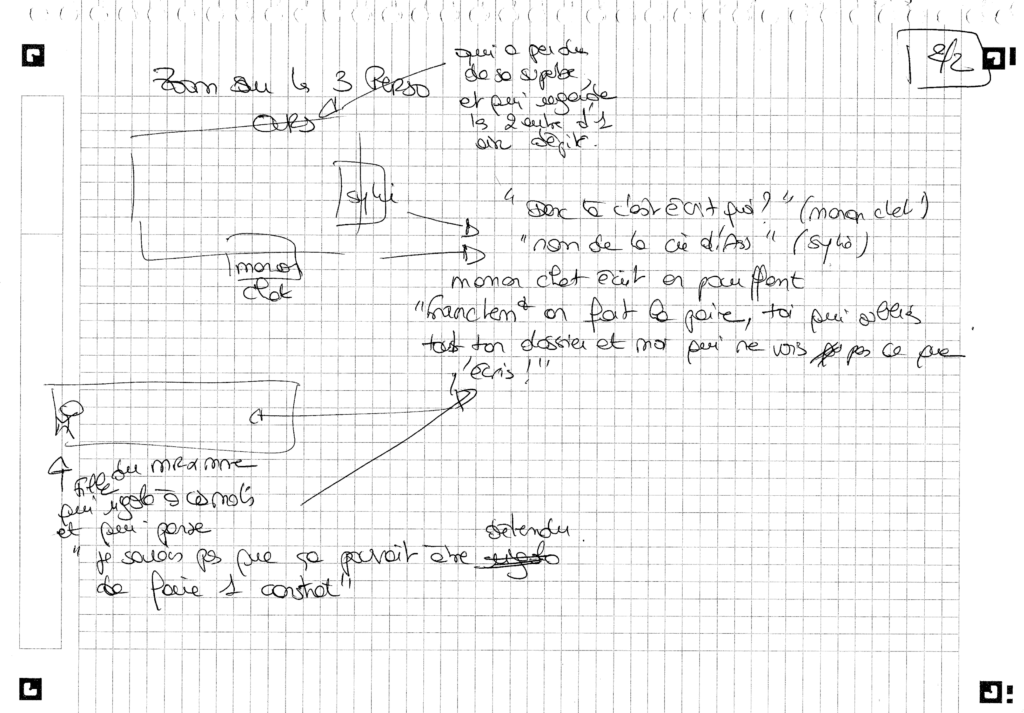 2/2
Zoom sur les 3 Perso
qui a perdu
de sa superbe,
et qui regarde
les 2 autre d'1
air dépité.
Sylvi
monon
clet
"Donc là c'est écrit quoi?" (monon clet)
"nom de la cie d'Ass" (Sylvi)
monon clet écrit en pouffant
"franctemt on fait la paire, toi qui oublis
tout ton dossier et moi qui ne vois pas ce que
j'écris!"
Fille du mr & mme
qui rigole à ces mots
et qui pense
détendu
"je savais pas que ça pouvait être rigolo
de faire 1 contrat"